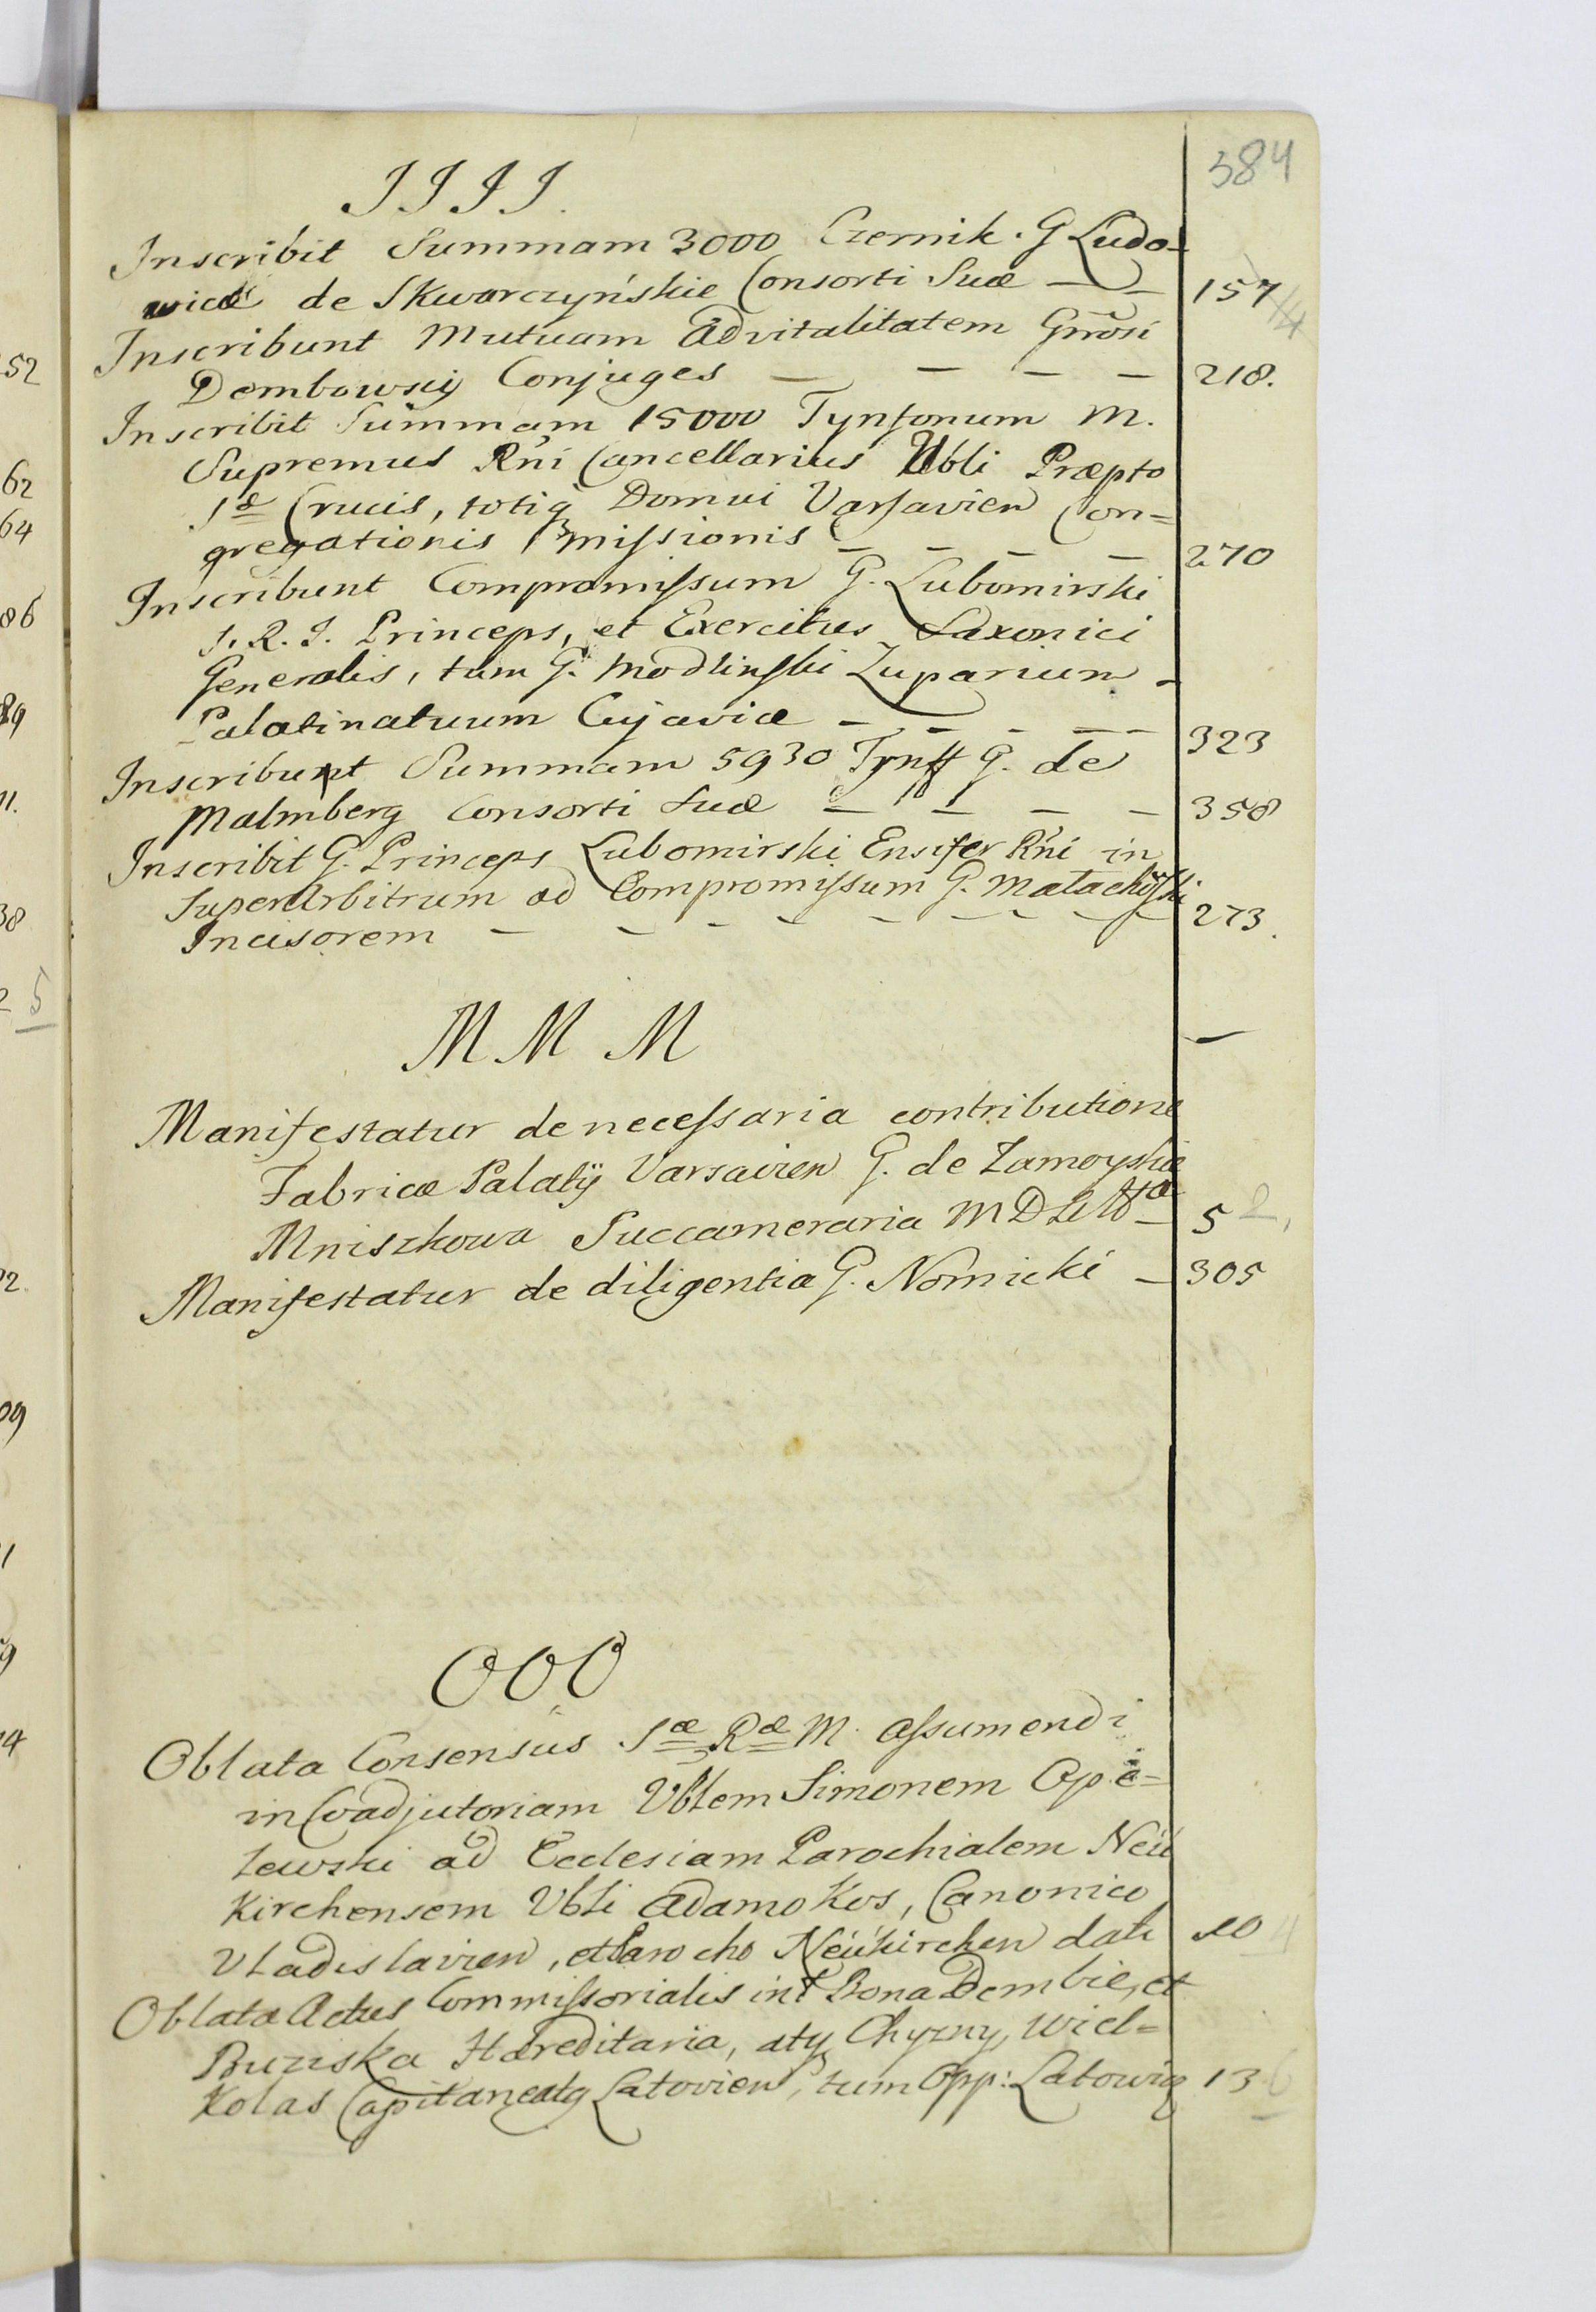 384
J J J J.
Inscribit Summam 3000 Czernik. G Ludo-
wicæ de Skwarczyńskie Consorti Suæ — 157
Inscribunt Mutuam Advitalitatem Gnrosi
Dembowscy Conjuges — — — — 218.
Inscribit Summam 15000 Tynfonum M.
Supremus Rni Cancellarius Vbli Præpto
S Crucis, totiq Domui Varsavien Con=
gregationis missionis — — — — 270
Inscribunt Compromissum G. Lubomirski
S. R. I. Princeps, et Exercitus Saxonici
Generalis, tum G. Modlinski Zuparium
Palatinatuum Cujaviæ — — — — 323
Inscribunt Summam 5930 Tynff G. de
Malmberg Consorti Suæ — — — — 358
Inscribit G. Princeps Lubomirski Ensifer Rni in
SuperArbitrum ad Compromissum G. Małachowski
Incisorem — — — — — — — 273.
M M M —
Manifestatur de necessaria contributione
Fabricæ Palatij Varsavien G. de Zamoyskie
Mniszkowa Succameraria M D Litt — 5 2
Manifestatur de diligentia G. Nornicki — 305
O O O
Oblata Consensus Sæ Ræ M. assumendi
in Coadjutoriam Vblem Simonem Ope=
lewski ad Ecclesiam Parochialem Neü
Kirchensem Vbli Adamo Kos, Canonico
Vladislavien, et Parocho Neükirchen dati 10 4
Oblata Actus Commissorialis int Bona Dembie, et
Ruziska Hæreditaria, atq Chyzny, Wiel=
Kolas Capitaneatq Latovien, tum Opp: Latowicz 13 6
52
62
64
86
89
11.
38
5
09